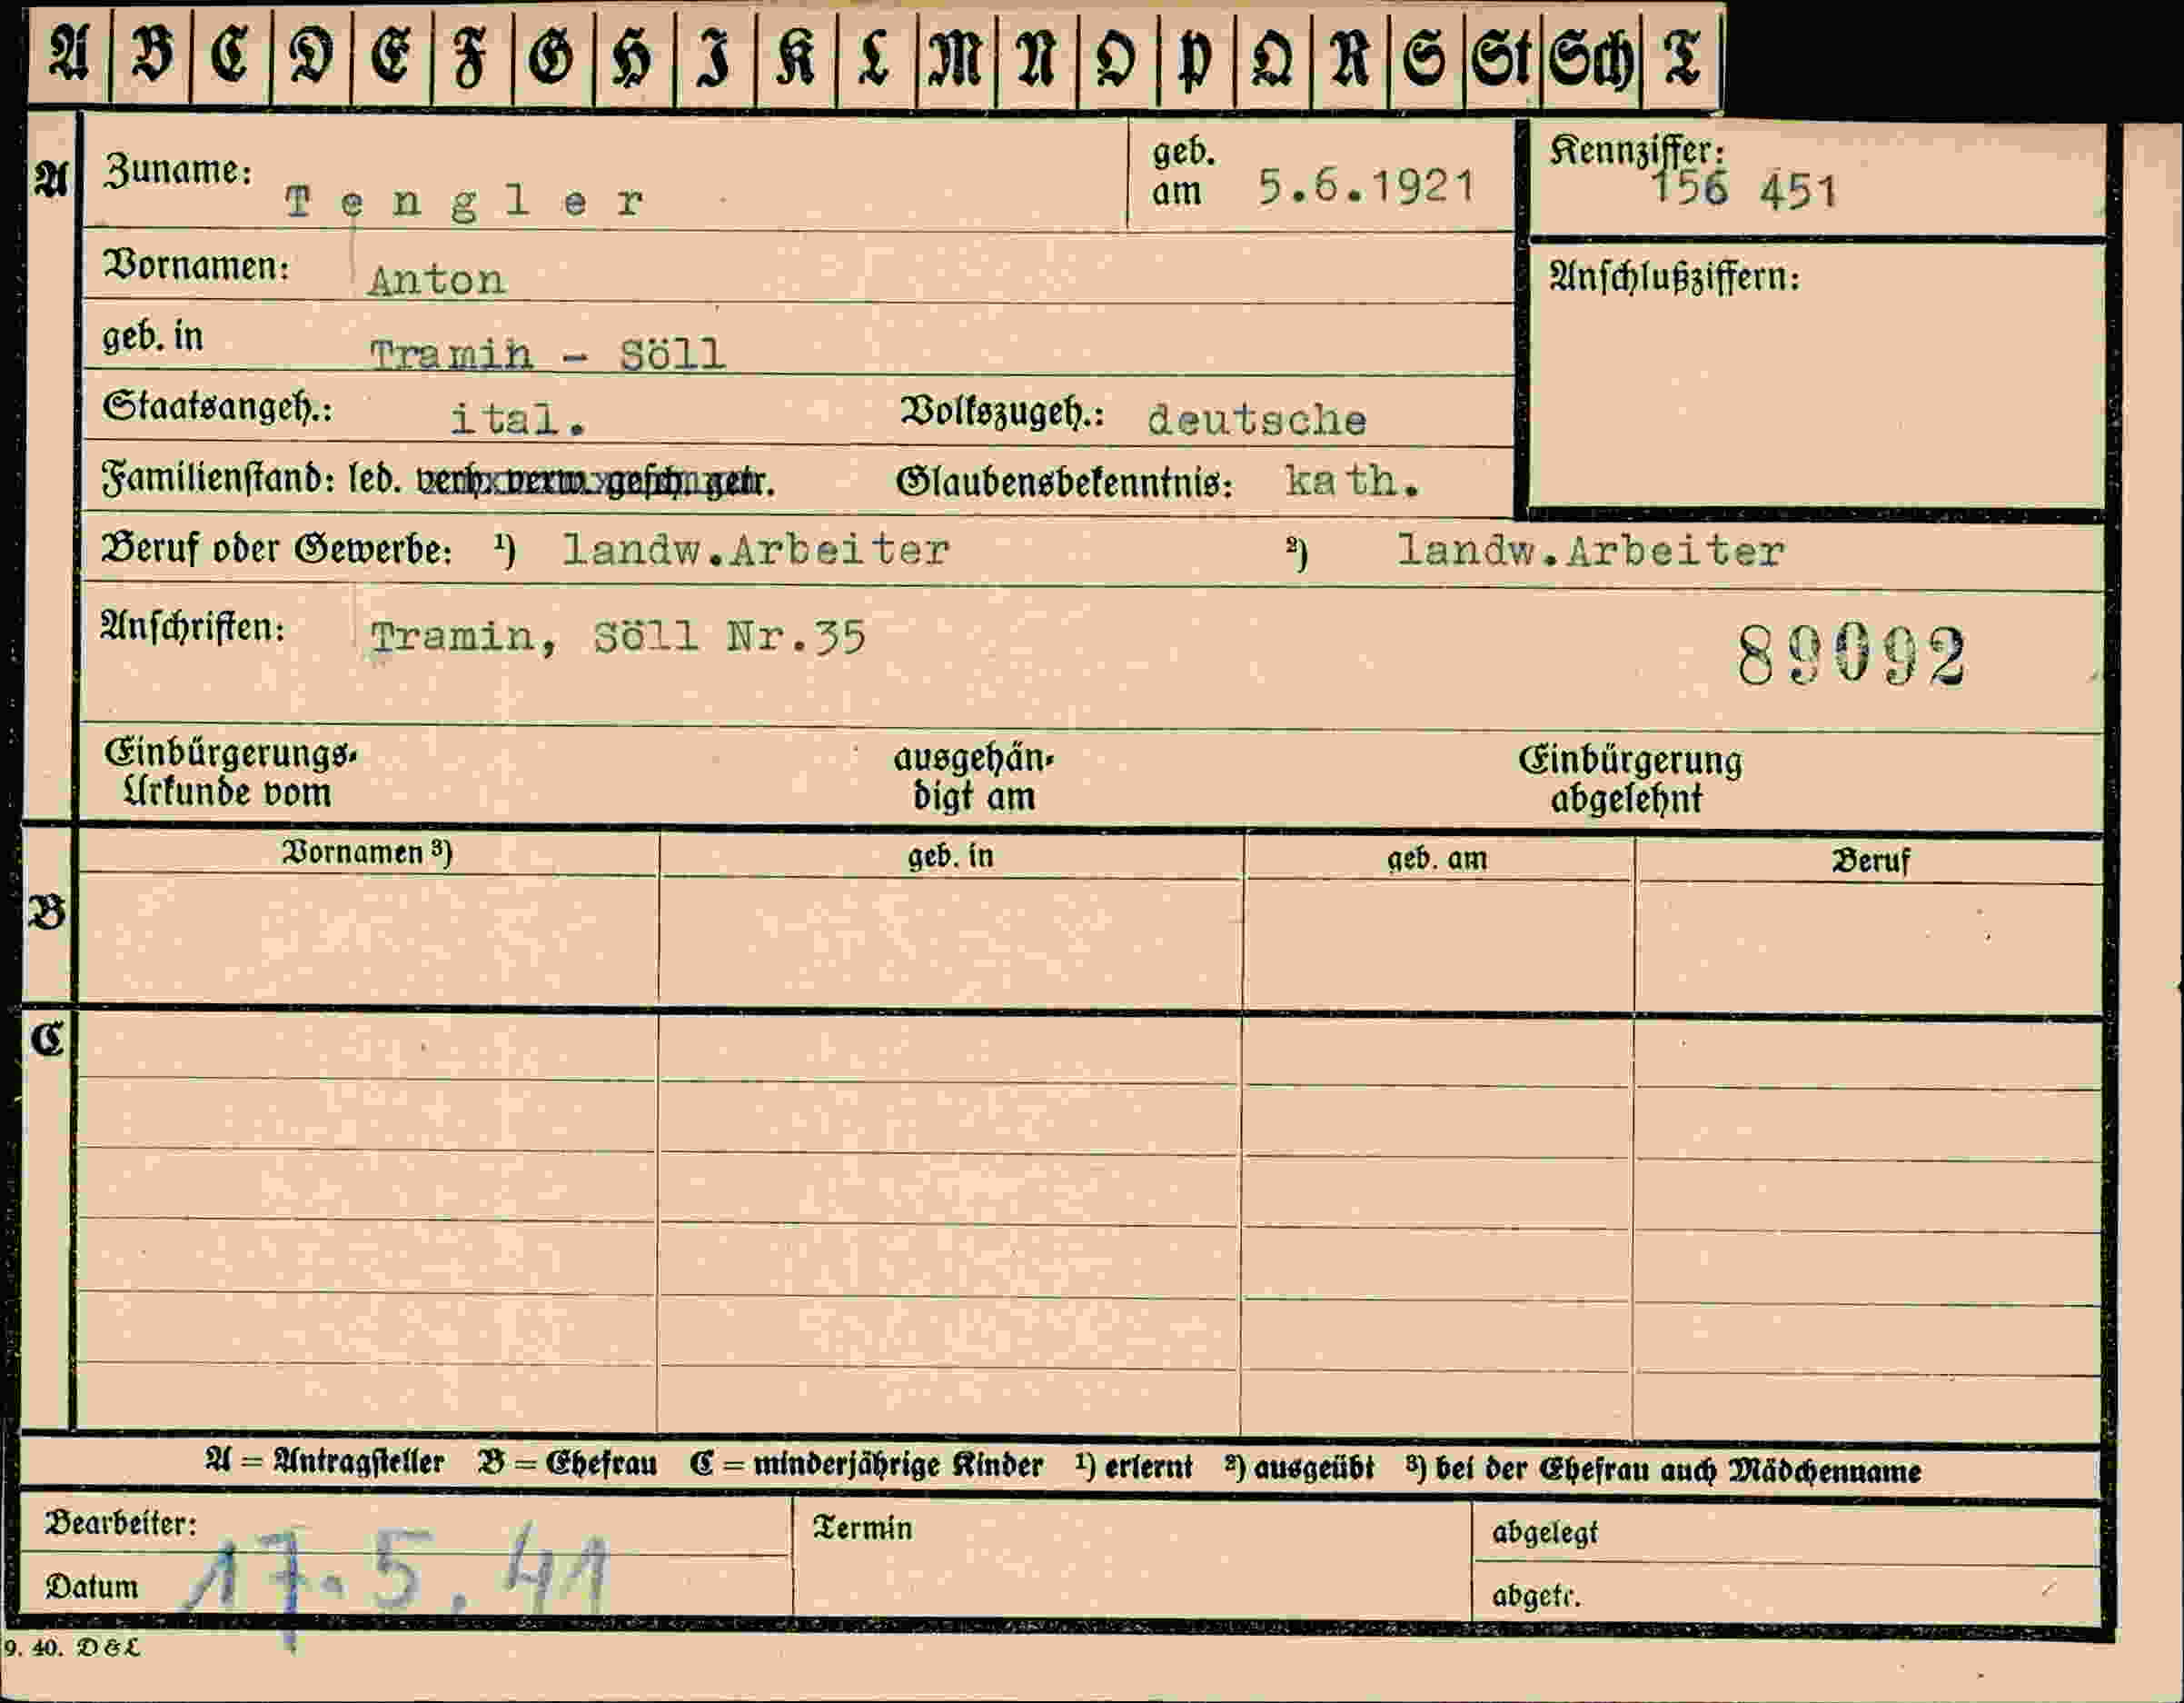 A B C D E F G H I K L M N O P Q R S St Sch T
A Zuname: Tengler geb. am 5.6.1921 Kennziffer: 156 451
Vornamen: Anton Anschlußziffern:
geb. in Tramin - Söll
Staatsangeh.: ital. Volkszugeh.: deutsche
Familienstand: led. verh. verw. gesch. getr. Glaubensbekenntnis: kath.
Beruf oder Gewerbe: ¹) landw.Arbeiter ²) landw.Arbeiter
Anschriften: Tramin, Söll Nr.35 89092
Einbürgerungs- ausgehän- Einbürgerung
Urkunde vom digt am abgelehnt
Vornamen ³) geb. in geb. am Beruf
B
C
A = Antragsteller B = Ehefrau C = minderjährige Kinder ¹) erlernt ²) ausgeübt ³) bei der Ehefrau auch Mädchenname
Bearbeiter: Termin abgelegt
Datum 17.5.41 abgetr.
9. 40. D & L